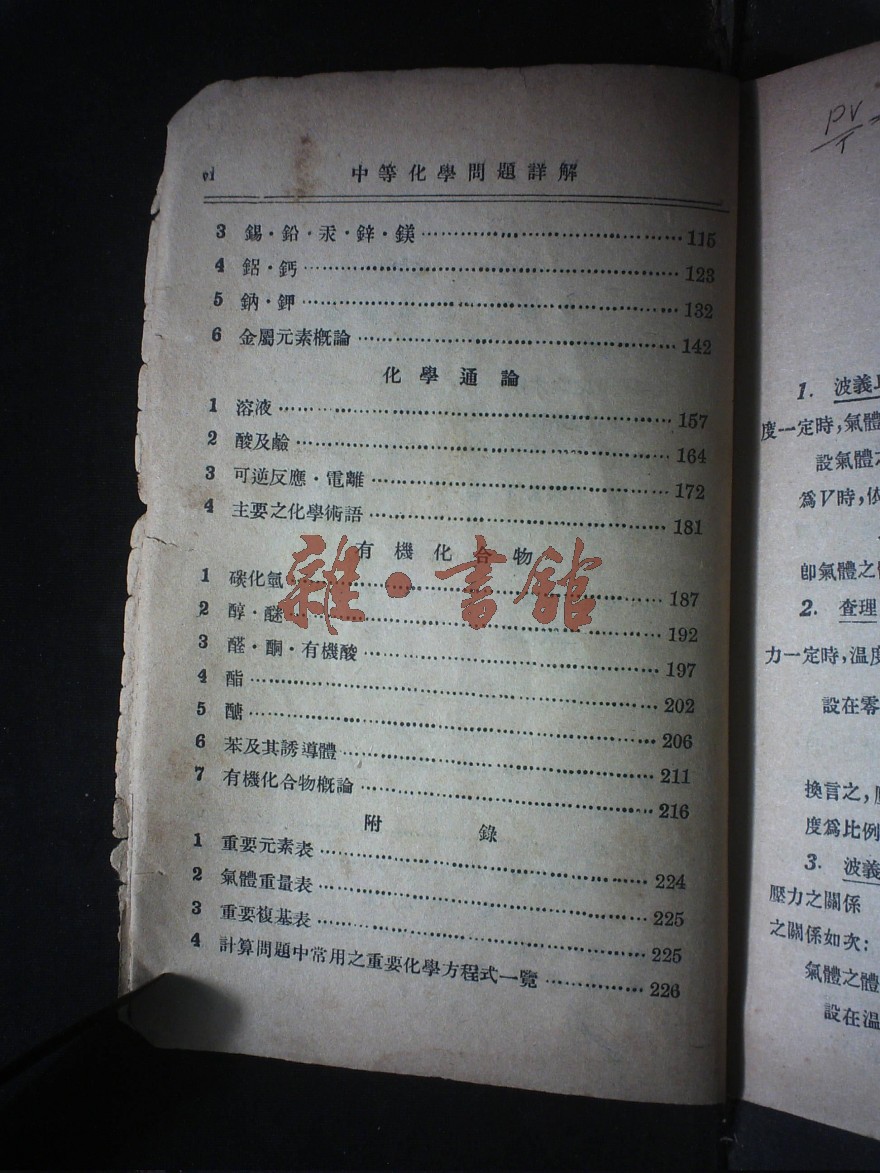 中等化學問題詳解
3 錫・鉛・汞・鋅・鎂 115
4 鋁・鈣 123
5 鈉・鉀 132
6 金屬元素概論 142
化學通論
1 溶液 157
2 酸及鹼 164
3 可逆反應・電離 172
4 主要之化學術語 181
有機化合物
1 碳化氫 187
2 醇・醚 192
3 醛・酮・有機酸 197
4 酯 202
5 醣 206
6 苯及其誘導體 211
7 有機化合物概論 216
附錄
1 重要元素表 224
2 氣體重量表 225
3 重要複基表 225
4 計算問題中常用之重要化學方程式一覽 226
雜・書館
PV
T
1. 波義
度一定時,氣體
設氣體
爲V時,依
卽氣體之
2. 查理
力一定時,溫度
設在零
換言之,
度爲比例
3. 波義
壓力之關係
之關係如次:
氣體之體
設在溫